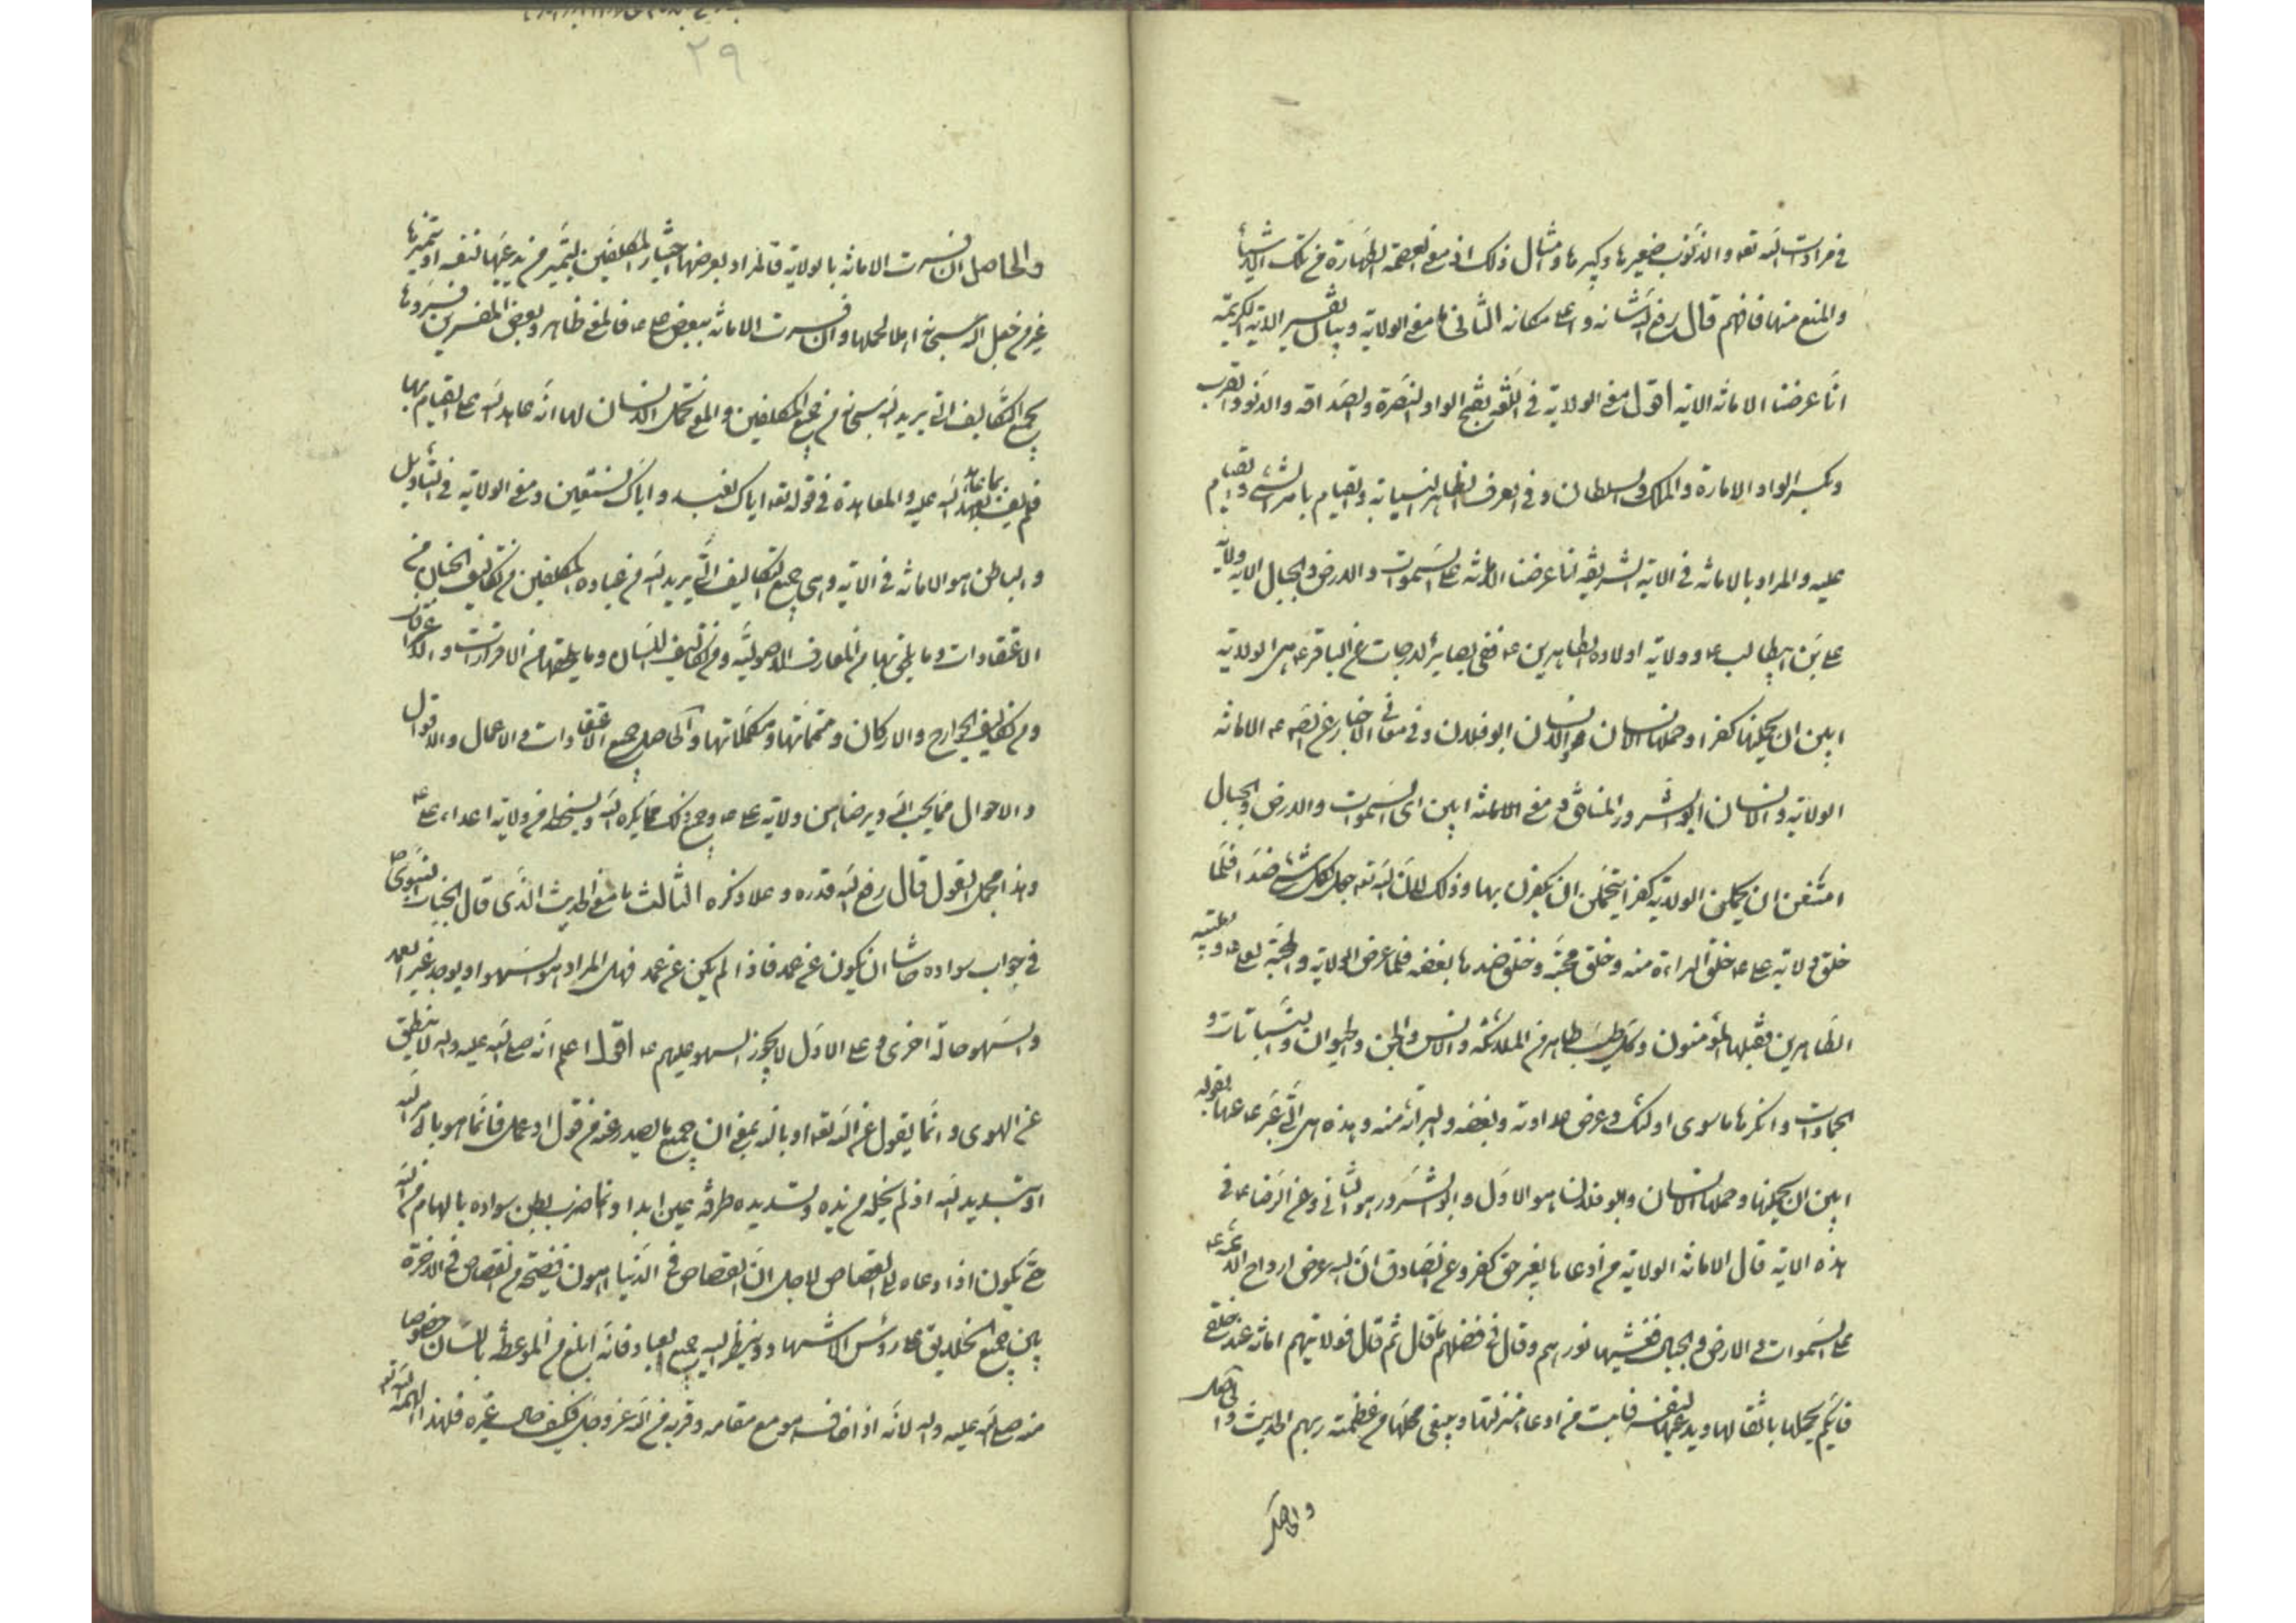 في مرادات الله تعالى والذنوب صغيرها وكبيرها وامثال ذلك اذ معنى العصمة الطهارة من تلك الاشياء
والمنع منها فافهم قال رفع الله شانه واعلى مكانه الثاني ما معنى الولاية وبيان تفسير الاية الكريمة
انا عرضنا الامانة الاية اقول معنى الولاية في اللغة بفتح الواو النصرة والصداقة والدنو والقرب
وبكسر الواو الامارة والملك والسلطان وفي العرف الظاهر النيابة والقيام بامر الشيء والقيام
عليه والمراد بالامانة في الاية الشريفة انا عرضنا الامانة على السموات والارض والجبال الاية ولاية
علي بن ابيطالب ع وولاية اولاده الطاهرين ع ففي بصائر الدرجات عن الباقر ع هي الولاية
ابين ان يحملنها كفرا وحملها الانسان والانسان ابو فلان وفي معاني الاخبار عن الص ع الامانة
الولاية والانسان ابو الشرور المنافق ومعنى الامانة ابين اى السموات والارض والجبال
امتنعن ان يحملن الولاية كفرا يتحملن ان يكفرن بها وذلك لان الله تعه جعل لكل شيء ضدا فلما
خلق ولاية علي ع خلق البراءة منه وخلق محبته وخلق ضدها بغضه فلما عرض الولاية والمحبة لعلي ع واهل بيته
الطاهرين فقبلها المؤمنون وكل طيب طاهر من الملائكة والانس والجن والحيوان والنباتات و
الجمادات وانكرها ما سوى اولئك وعرض عداوته وبغضه والبرائة منه وهذه هي التي عبر ع عنها بقوله
ابين ان يحملنها وحملها الانسان وابو فلان هو الاول وابو الشرور هو الثاني وعن الرضا ع في
هذه الاية قال الامانة الولاية من ادعاها بغير حق كفر وعن الصادق ان الله عرض ارواح الائمة ع
على السموات والارض والجبال فغشيها نورهم وقال في فضلهم ما قال ثم قال فولايتهم امانة عند خلقي
فايكم يحملها باثقالها ويدعيها لنفسه فابت من ادعاء منزلتها وتمنى محلها من عظمة ربهم الحديث والحاصل
والحاصل
٢٩
والحاصل ان فسرت الامانة بالولاية فالمراد بعرضها اختبار المكلفين ليتميز من يدعيها لنفسه او يتمناها
غير من جعل الله سبحانه اهلا لمحلها وان فسرت الامانة ببغض علي ع فالمعنى ظاهر وبعض المفسرين فسروها
بجميع التكاليف التي يريد الله سبحانه من جميع المكلفين والمع تحمل الانسان لها انه عاهد الله على القيام بها
فلم يف بما عاهد الله عليه والمعاهدة في قوله تعه اياك نعبد واياك نستعين ومعنى الولاية في التاويل
والباطن هو الامانة في الاية وهي جميع التكاليف التي يريد الله من عباده المكلفين من تكاليف الجنان من
الاعتقادات وما يلحق بها من المعارف الاصولية ومن تكاليف اللسان وما يلحقها من الاقرارات والاذكار
ومن تكاليف الجوارح والاركان ومتمماتها ومكملاتها والحاصل جميع الاعتقادات والاعمال والاقوال
والاحوال مما يحب الله ويرضا من ولاية علي ع وجميع ذلك مما يكره الله ويسخطه من ولاية اعداء علي ع
وهذا مجمل القول قال رفع الله قدره وعلا ذكره الثالث ما معنى الحديث الذى قال الجناب النبوي ص
في جواب سواده حاشا ان يكون عن عمد فاذا لم يكن عن عمد فهل المراد هو السهو او يوجد غير العمد
والسهو حالة اخرى وعلى الاول لا يجوز السهو عليهم ع اقول اعلم انه صلى الله عليه واله لا ينطق
عن الهوى وانما يقول عن الله تعه او بالله بمعنى ان جميع ما يصدر عنه من قول او عمل فانما هو بامر الله
او بتسديد الله اذ لم يخله من يده وتسديده طرفة عين ابدا وانما ضرب بطن سواده بالهام من الله
حتى يكون اذا دعاه للقصاص لاجل ان القصاص في الدنيا اهون من فضيحة القصاص في الاخرة
بين جميع الخلايق على رؤس الاشهاد وينظر اليه جميع العباد فانه ابلغ من الموعظة باللسان خصوصا
منه صلى الله عليه واله لانه اذا خاف هو مع مقامه وقربه من الله عز وجل فكيف حال غيره فلهذا الهمه الله تعه